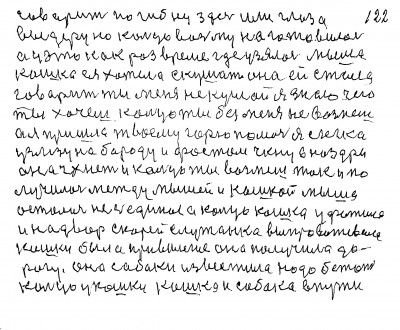 говарит погибну здес или глаза 122
видеру но калцо возму на готовилас
а уэто как раз время где узялас мыша
кошка ея хотела скушат она ей стала
говарит ты меня не кушай я знаю чего
ты хочеш калцо ты без меня не возмеш
а я пришла твоему горю помоч я слегка
узлизу на бароду и хвостом чкну в ноздри
он ачхнет и калцо ты возмеш так и по
лучилос между мышей и кошкой мыша
осталос не седиков а калцо кошка ухватила
и на двор скорей слутанка выпроваживат
кошки была привиление она получила до-
рогу. она сабаки известила надо бежат
калцо у кошки кошка и сабака впути